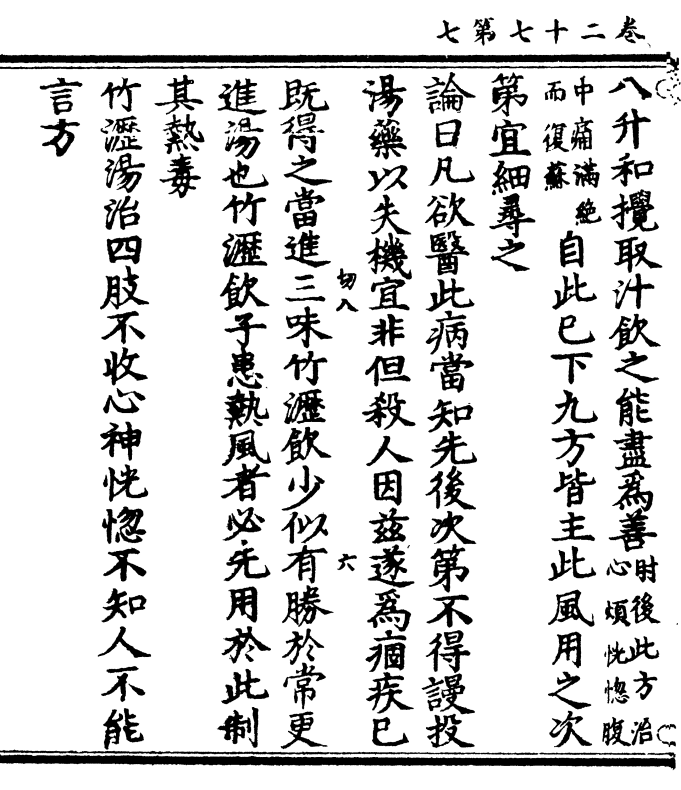 卷二十七第七
八升和攪取汁飲之能盡爲善肘後此方治心煩恍惚腹
中痛滿絶而復蘇自此已下九方皆主此風用之次
第宜細尋之
論曰凡欲醫此病當知先後次第不得謾投
湯藥以失機宜非但殺人因茲遂爲痼疾已
既得之當進三味竹瀝飲少似有勝於常更
進湯也竹瀝飲子患熱風者必先用於此制
其熱毒
竹瀝湯治四肢不收心神恍惚不知人不能
言方
切八
六